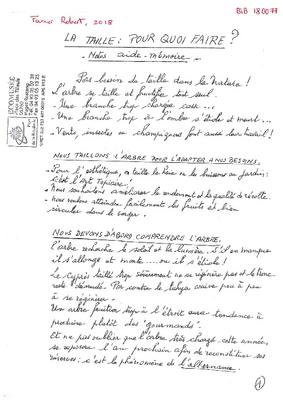 Robert, 2018
BiB 180077
LA TAILLE : POUR QUOI FAIRE ?
- Notes aide-mémoire -
Pas besoin de taille dans la Nature !
L'arbre se taille et fructifie tout seul.
- Une branche trop chargée casse...
- Une branche trop à l'ombre s'étiole et meurt...
- Vents, insectes ou champignons font aussi leur travail !
NOUS TAILLONS L'ARBRE POUR L'ADAPTER A NOS BESOINS.
- Pour l'esthétique, on taille la haie ou les buissons au jardin :
c'est l'Art Topiaire !
- Nous souhaitons améliorer le rendement et la qualité de récolte.
- Nous voulons atteindre facilement les fruits et bien
circuler dans le verger.
NOUS DEVONS D'ABORD COMPRENDRE L'ARBRE.
L'arbre recherche le soleil et la lumière. S'il en manque
il s'allonge et monte..... ou il s'étiole !
Le Cyprès taillé trop sévèrement ne se régénère pas et
reste dénudé. Par contre le thuya arrive peu à peu
à se régénérer.
Un arbre fruitier trop à l'étroit aura tendance à
produire plutôt des "gourmands".
Et ne pas oublier que l'arbre très chargé cette année,
se reposera l'an prochain afin de reconstituer ses
réserves : c'est le phénomène de l'alternance.
1